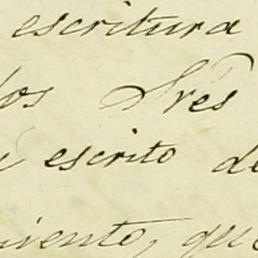 escritura
los Sres
escrito de